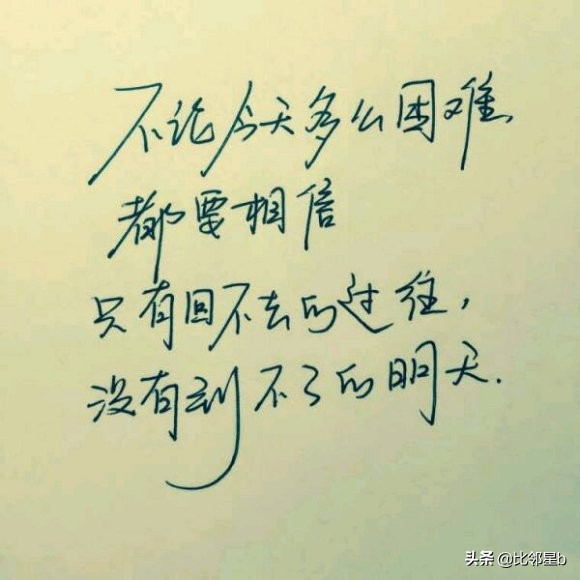 不论今天多么困难,
都要相信
只有回不去的过往,
没有到不了的明天.
头条 @比邻星b